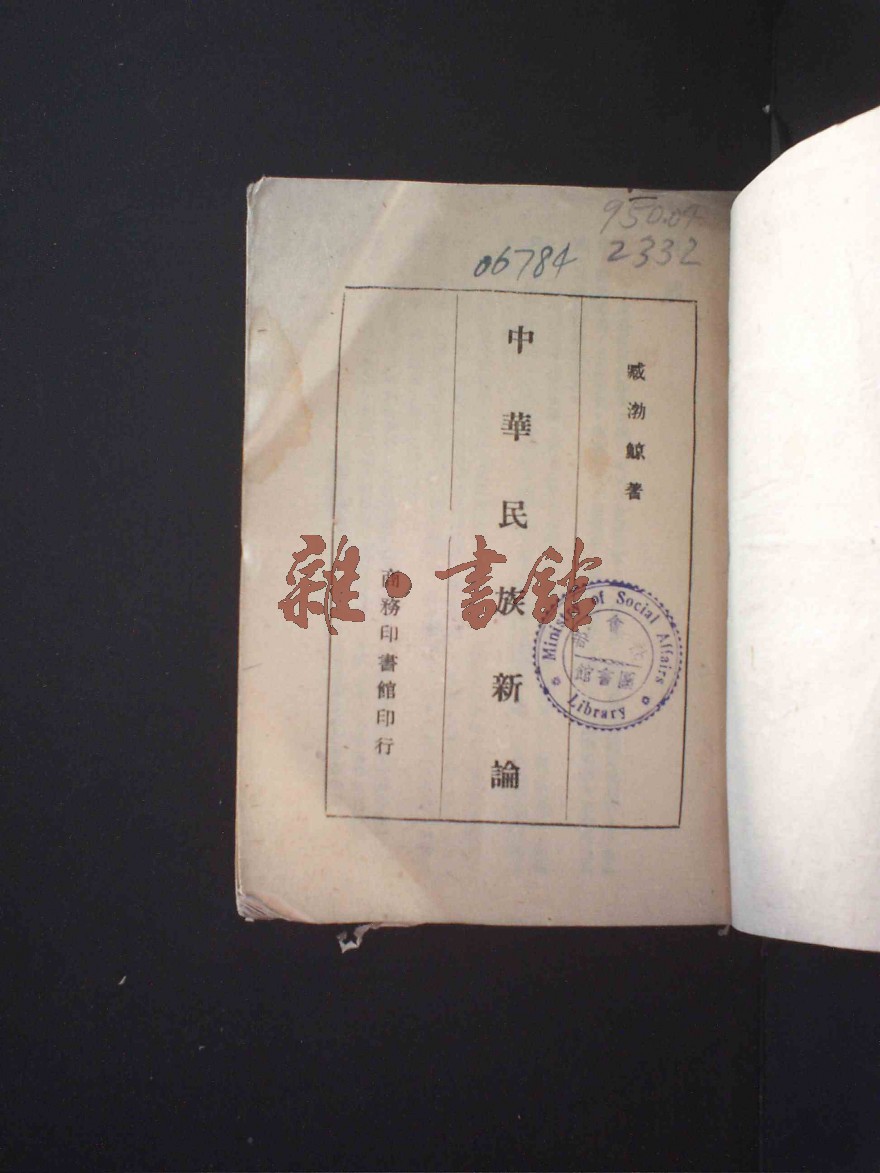 950.09
2332
06784
臧渤鯨著
中華民族新論
商務印書館印行
雜·書館
Ministry of Social Affairs
Library
社會部
圖書館